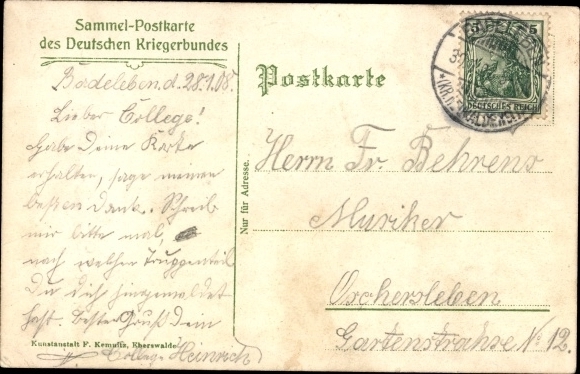 Sammel-Postkarte
des Deutschen Kriegerbundes
Badeleben d. 28.1.08.
Lieber College!
Habe Deine Karte
erhalten, sage meinen
besten Dank. Schreib
mir bitte mal,
nach welchen Truppenteil
Du dich hingemeldet
hast. Besten Gruß Dein
College Heinrich
Kunstanstalt F. Kemnitz, Eberswalde
Postkarte
Nur für Adresse.
5
DEUTSCHES REICH
BADELEBEN
Herrn Fr. Behrens
Musiker
Oschersleben
Gartenstrahse No 12.